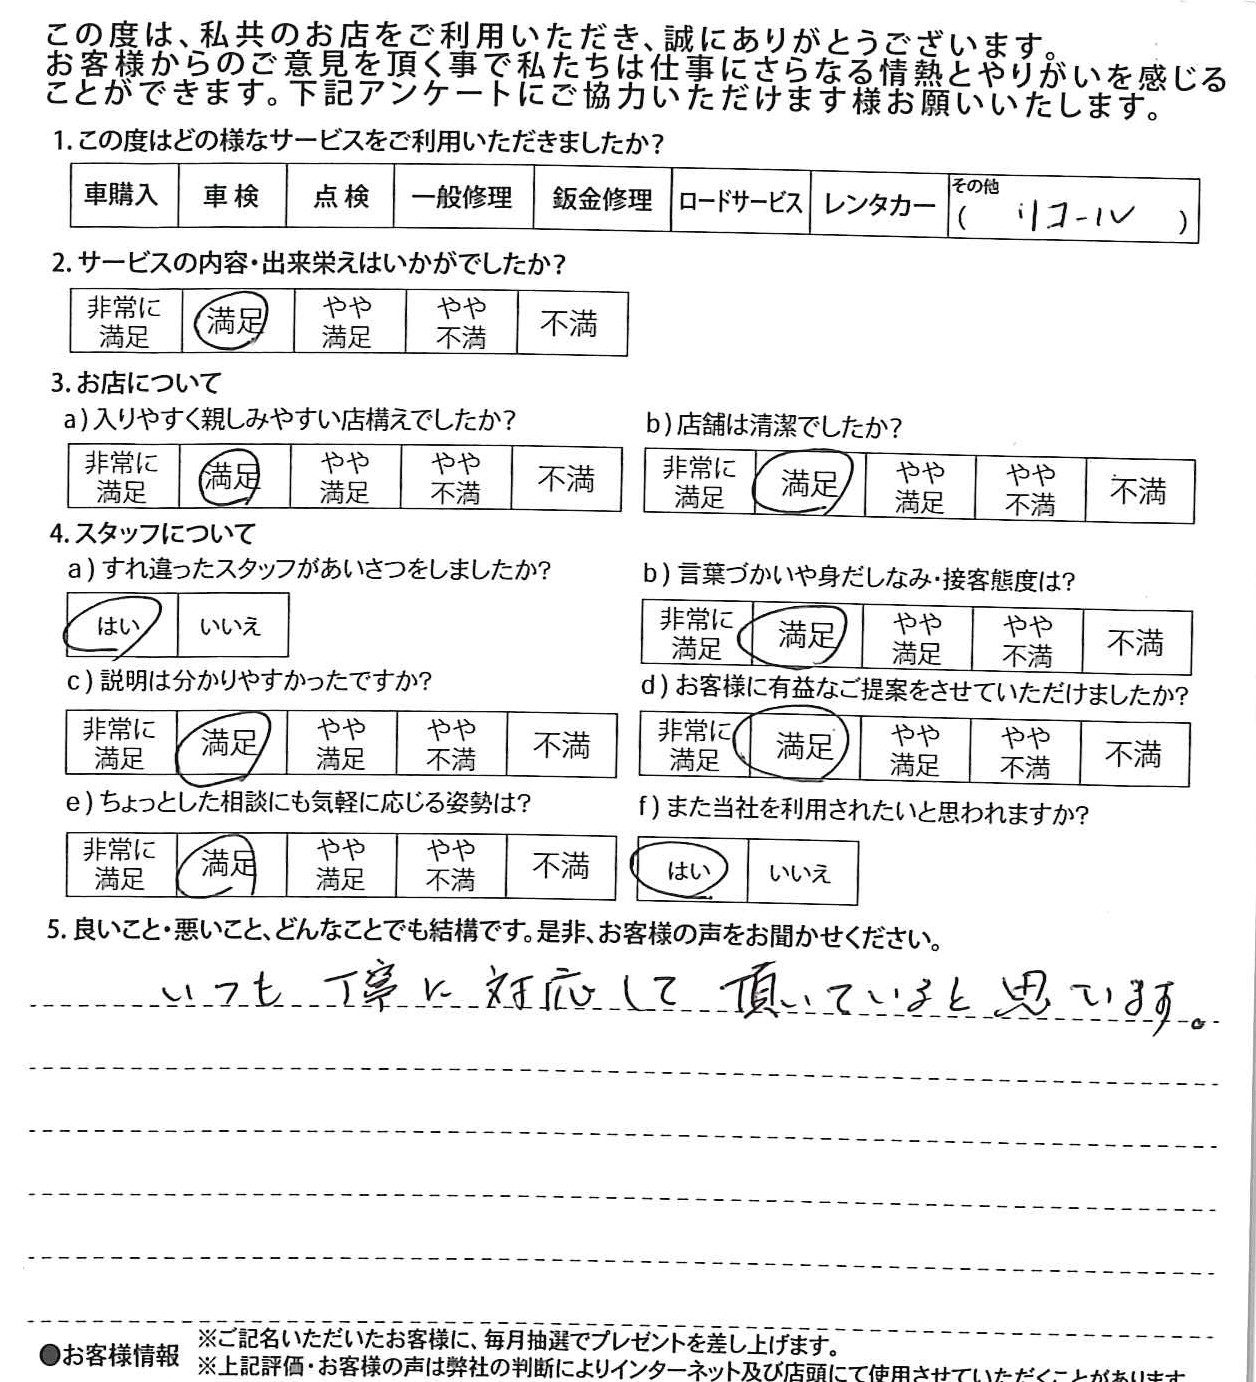 この度は、私共のお店をご利用いただき、誠にありがとうございます。
お客様からのご意見を頂く事で私たちは仕事にさらなる情熱とやりがいを感じる
ことができます。下記アンケートにご協力いただけます様お願いいたします。
1.この度はどの様なサービスをご利用いただきましたか?
車購入 車検 点検 一般修理 鈑金修理 ロードサービス レンタカー その他
( リコール )
2.サービスの内容・出来栄えはいかがでしたか?
非常に満足 満足 やや満足 やや不満 不満
3.お店について
a)入りやすく親しみやすい店構えでしたか?
非常に満足 満足 やや満足 やや不満 不満
b)店舗は清潔でしたか?
非常に満足 満足 やや満足 やや不満 不満
4.スタッフについて
a)すれ違ったスタッフがあいさつをしましたか?
はい いいえ
b)言葉づかいや身だしなみ・接客態度は?
非常に満足 満足 やや満足 やや不満 不満
c)説明は分かりやすかったですか?
非常に満足 満足 やや満足 やや不満 不満
d)お客様に有益なご提案をさせていただけましたか?
非常に満足 満足 やや満足 やや不満 不満
e)ちょっとした相談にも気軽に応じる姿勢は?
非常に満足 満足 やや満足 やや不満 不満
f)また当社を利用されたいと思われますか?
はい いいえ
5.良いこと・悪いこと、どんなことでも結構です。是非、お客様の声をお聞かせください。
いつも 丁寧に 対応して 頂いていると 思ています。
●お客様情報
※ご記名いただいたお客様に、毎月抽選でプレゼントを差し上げます。
※上記評価・お客様の声は弊社の判断によりインターネット及び店頭にて使用させていただくことがあります